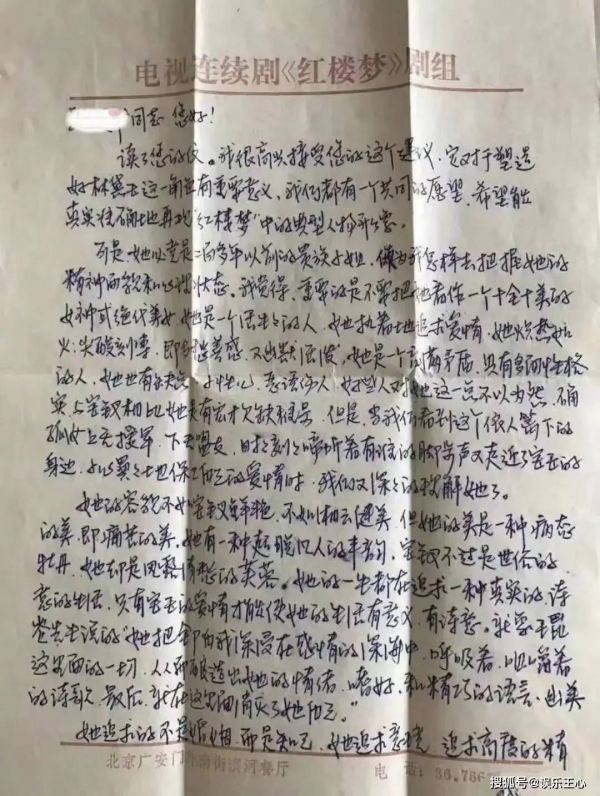 电视连续剧《红楼梦》剧组
同志 您好!
读了您的信。我很高兴接受您的这个建议,它对于塑造
好林黛玉这一角色有重要意义,我们都有一个共同的愿望,希望能
真实准确地再现"红楼梦"中的典型人物形象。
可是,她必竟是二百多年以前的贵族小姐,怎样去把握她的
精神面貌和心理状态。我觉得,重要的是不要把她看作一个十全十美的
女神或绝代美女,她是一个活生生的人,她执着地追求爱情,她炽热如
火;尖酸刻薄,即多愁善感,又幽默活泼,她是一个充满矛盾,具有多面性格
的人,她也有缺点,小性儿,恶语伤人,好些人对她这一点不以为然,确
实与宝钗相比她是有欠缺,但是,当我们看到这个依人篱下的
孤女上无援军,下无盟友,时时刻刻啼听着有谁的脚步声又走近了宝玉的
身边,小心翼翼地保卫自己的爱情时,我们又深深的理解她了。
她的容貌不如宝钗鲜艳,不如湘云健美,但她的美是一种病态
的美,即痛苦的美,她有一种超脱旧人的丰韵,宝钗不过是世俗的
牡丹,她却是风露清愁的芙蓉。她的一生都在追求一种真实的、诗
意的生活,只有宝玉的爱情才能使她的生活有意义,有诗意。就象王昆
仑先生说的"她把全部自我沉浸在感情的深海中,呼吸着,咀嚼着
这里面的一切,从而酿造出她的情绪,嗜好,和精巧的语言,幽美
的诗歌,最后,就在这里面消灭了她自己。"
她追求的不是婚姻,而是知己,她追求意境,追求高度的精
北京广安门外南街滨河餐厅
电 话:36.766
搜狐号@娱乐王心